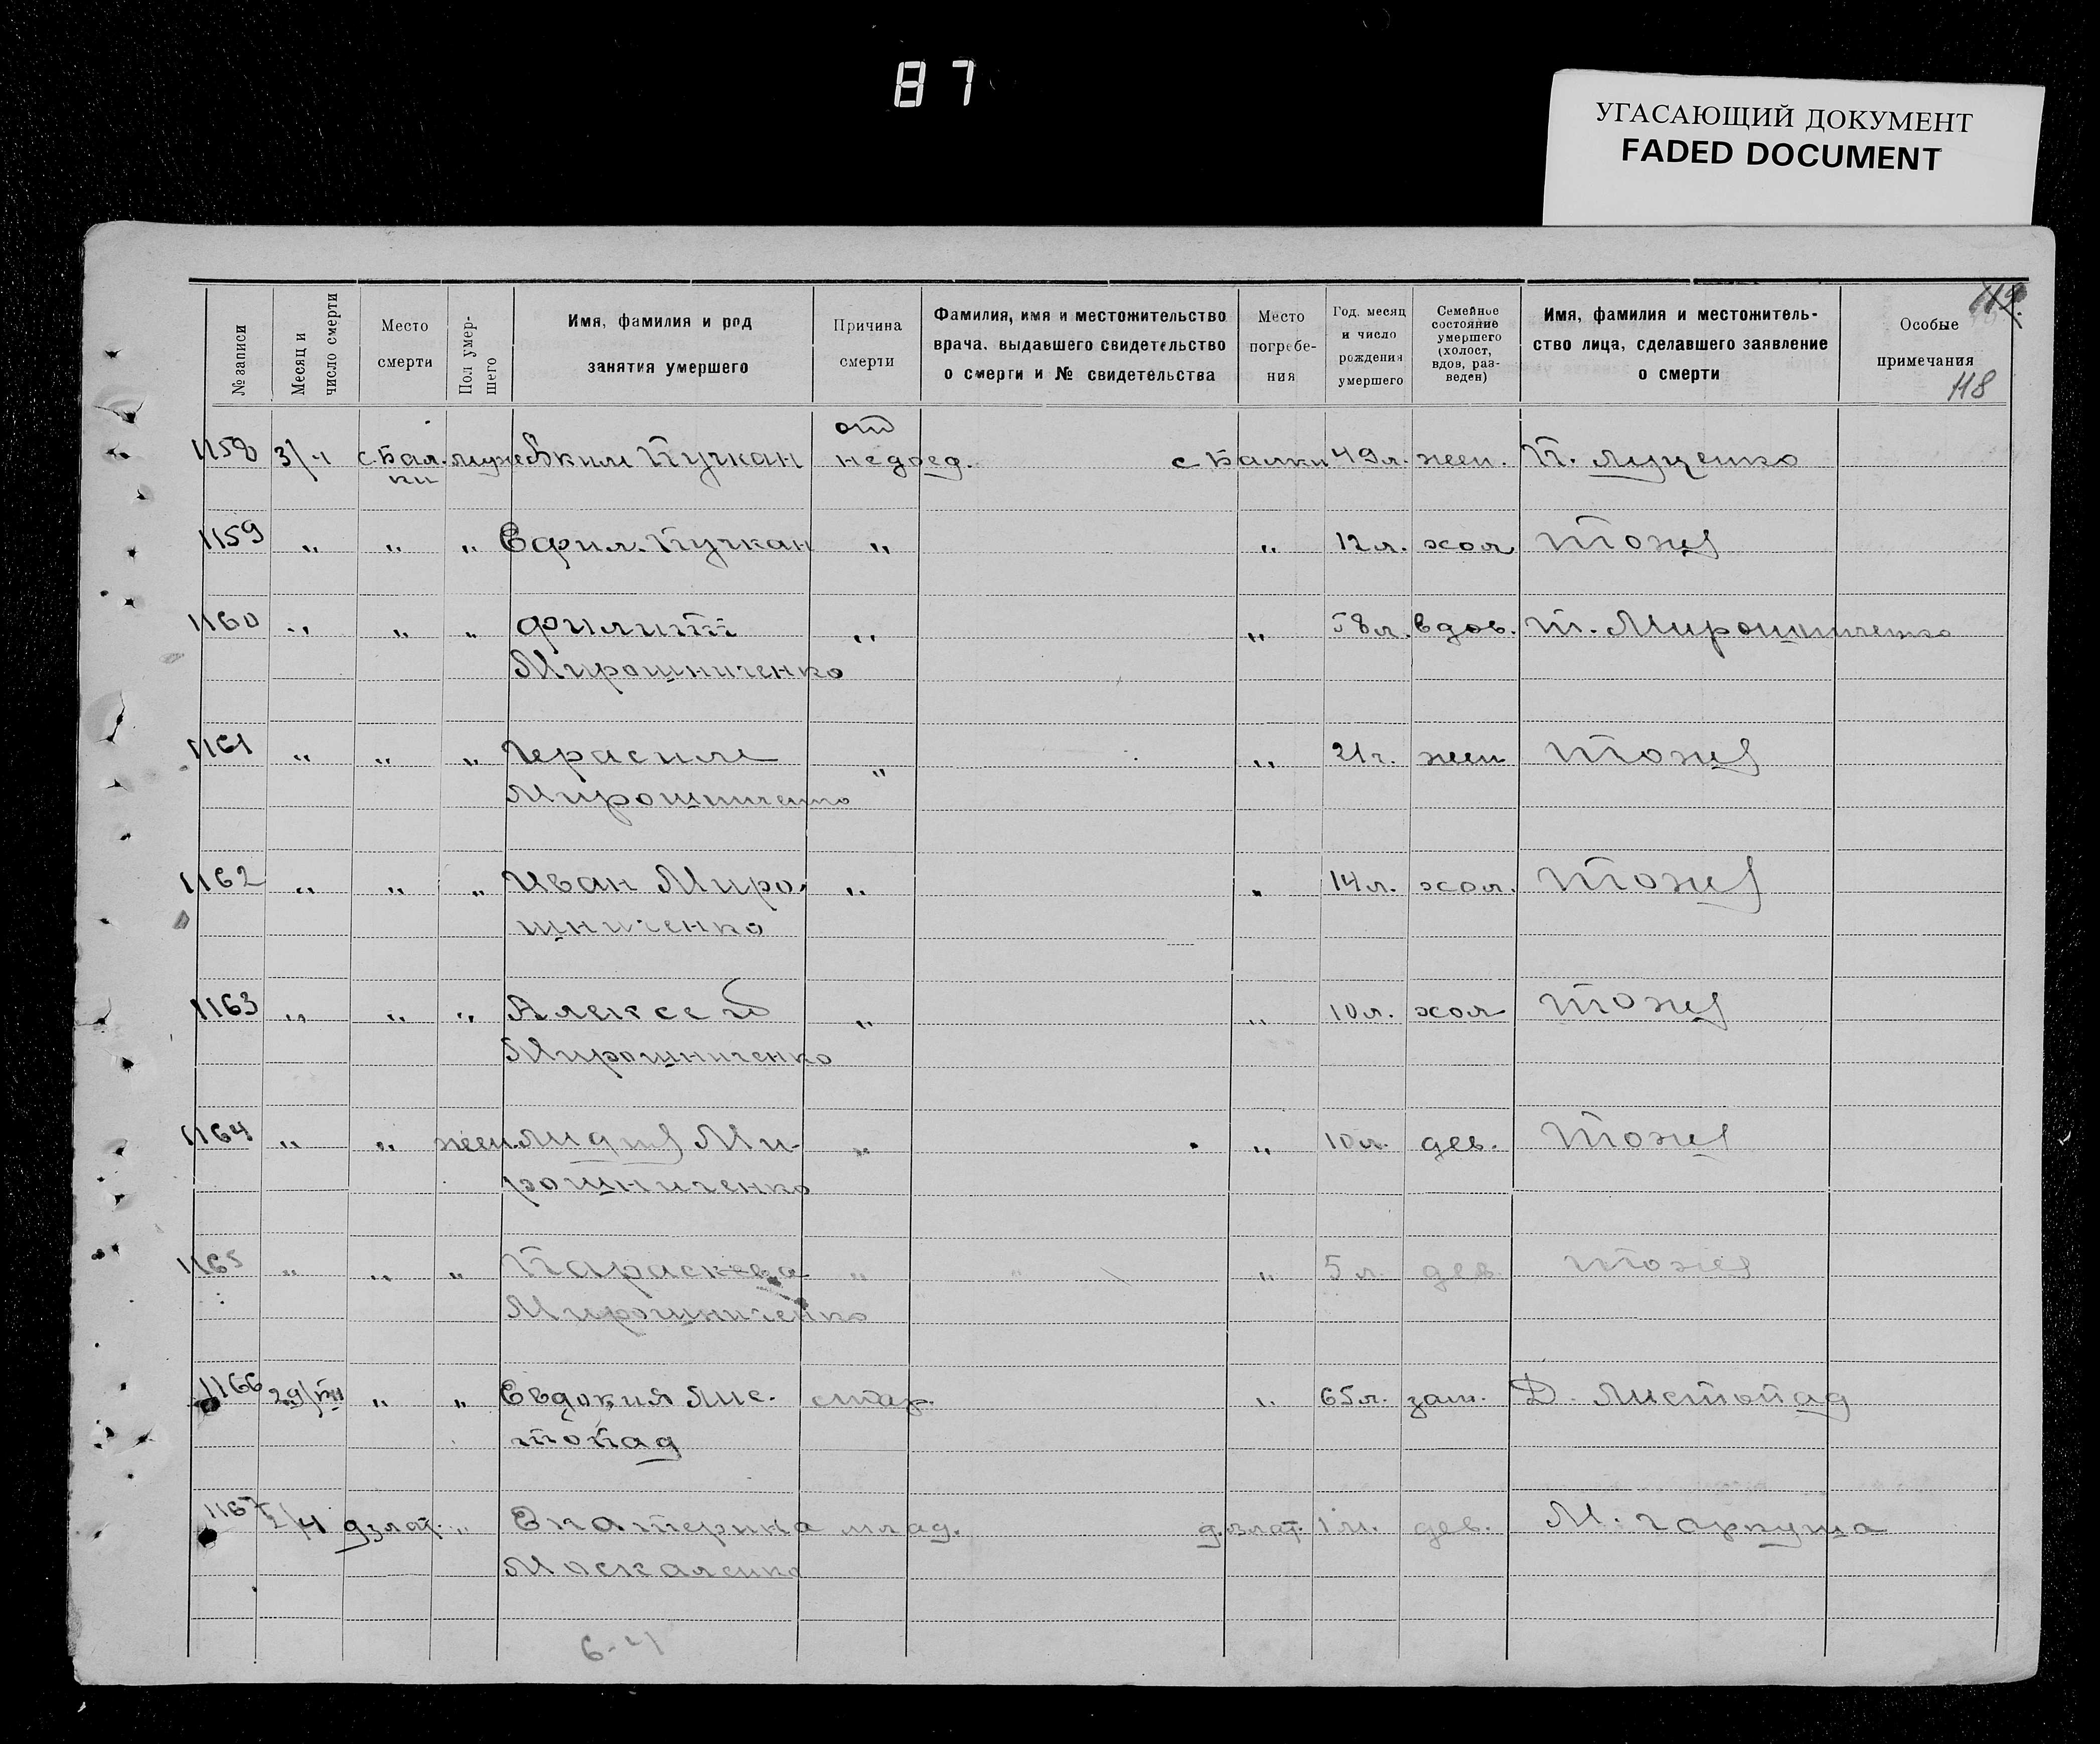 87
УГАСАЮЩИЙ ДОКУМЕНТ
FADED DOCUMENT
119.
118
№ записи | Месяц и число смерти | Место смерти | Пол умершего | Имя, фамилия и род занятия умершего | Причина смерти | Фамилия, имя и местожительство врача, выдавшего свидетельство о смерти и № свидетельства | Место погребения | Год, месяц и число рождения умершего | Семейное состояние умершего (холост, вдов, разведен) | Имя, фамилия и местожительство лица, сделавшего заявление о смерти | Особые примечания
от
1158 3/4 с. Бал. муж Яким Пучкан недоед. с Балки 49 л. жен. П. Луценко
ки
1159 " " " Ефим. Пучкан " " 12 л. хол. Тоже
1160 " " " Филипп " " 58 л. вдов. Т. Мирошниченко
Мирошниченко
1161 " " " Герасим " " 21 г. жен Тоже
Мирошниченко
1162 " " " Иван Миро- " " 14 л. хол. Тоже
шниченко
1163 " " " Алексей " " 10 л. хол Тоже
Мирошниченко
1164 " " жен. Лидия Ми- " " 10 л. дев. Тоже
рошниченко
1165 " " " Параскева " " 5 л. дев. Тоже
Мирошниченко
1166 29/III " " Евдокия Лис- стар. " 65 л. зам. Д. Листопад
топад
1167 2/4 д злат. " Екатерина млад. д. злат. 1 м. дев. М. Гаркуша
Москаленко
6-4